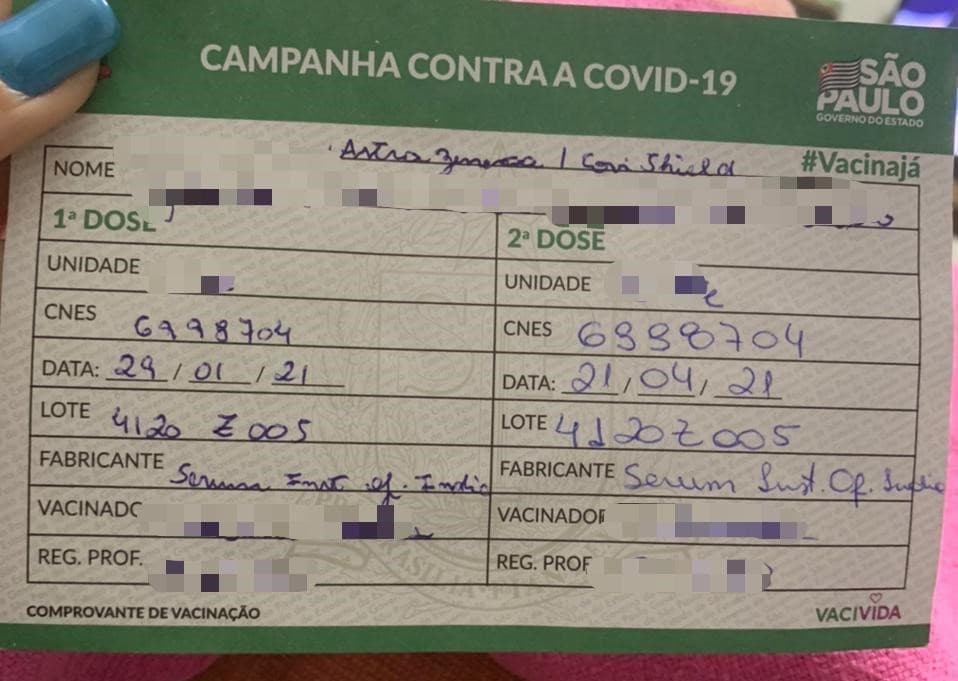 CAMPANHA CONTRA A COVID-19
SÃO
PAULO
GOVERNO DO ESTADO
#Vacinajá
Astra Zeneca / Covi Shield
NOME
1ª DOSE
2ª DOSE
UNIDADE
UNIDADE
CNES 6998704
CNES 6998704
DATA: 29/01/21
DATA: 21/04/21
LOTE 4120 Z005
LOTE 4120Z005
FABRICANTE Serum Inst. of. India
FABRICANTE Serum Inst. Of. India
VACINADO
VACINADOR
REG. PROF.
REG. PROF
COMPROVANTE DE VACINAÇÃO
VACIVIDA